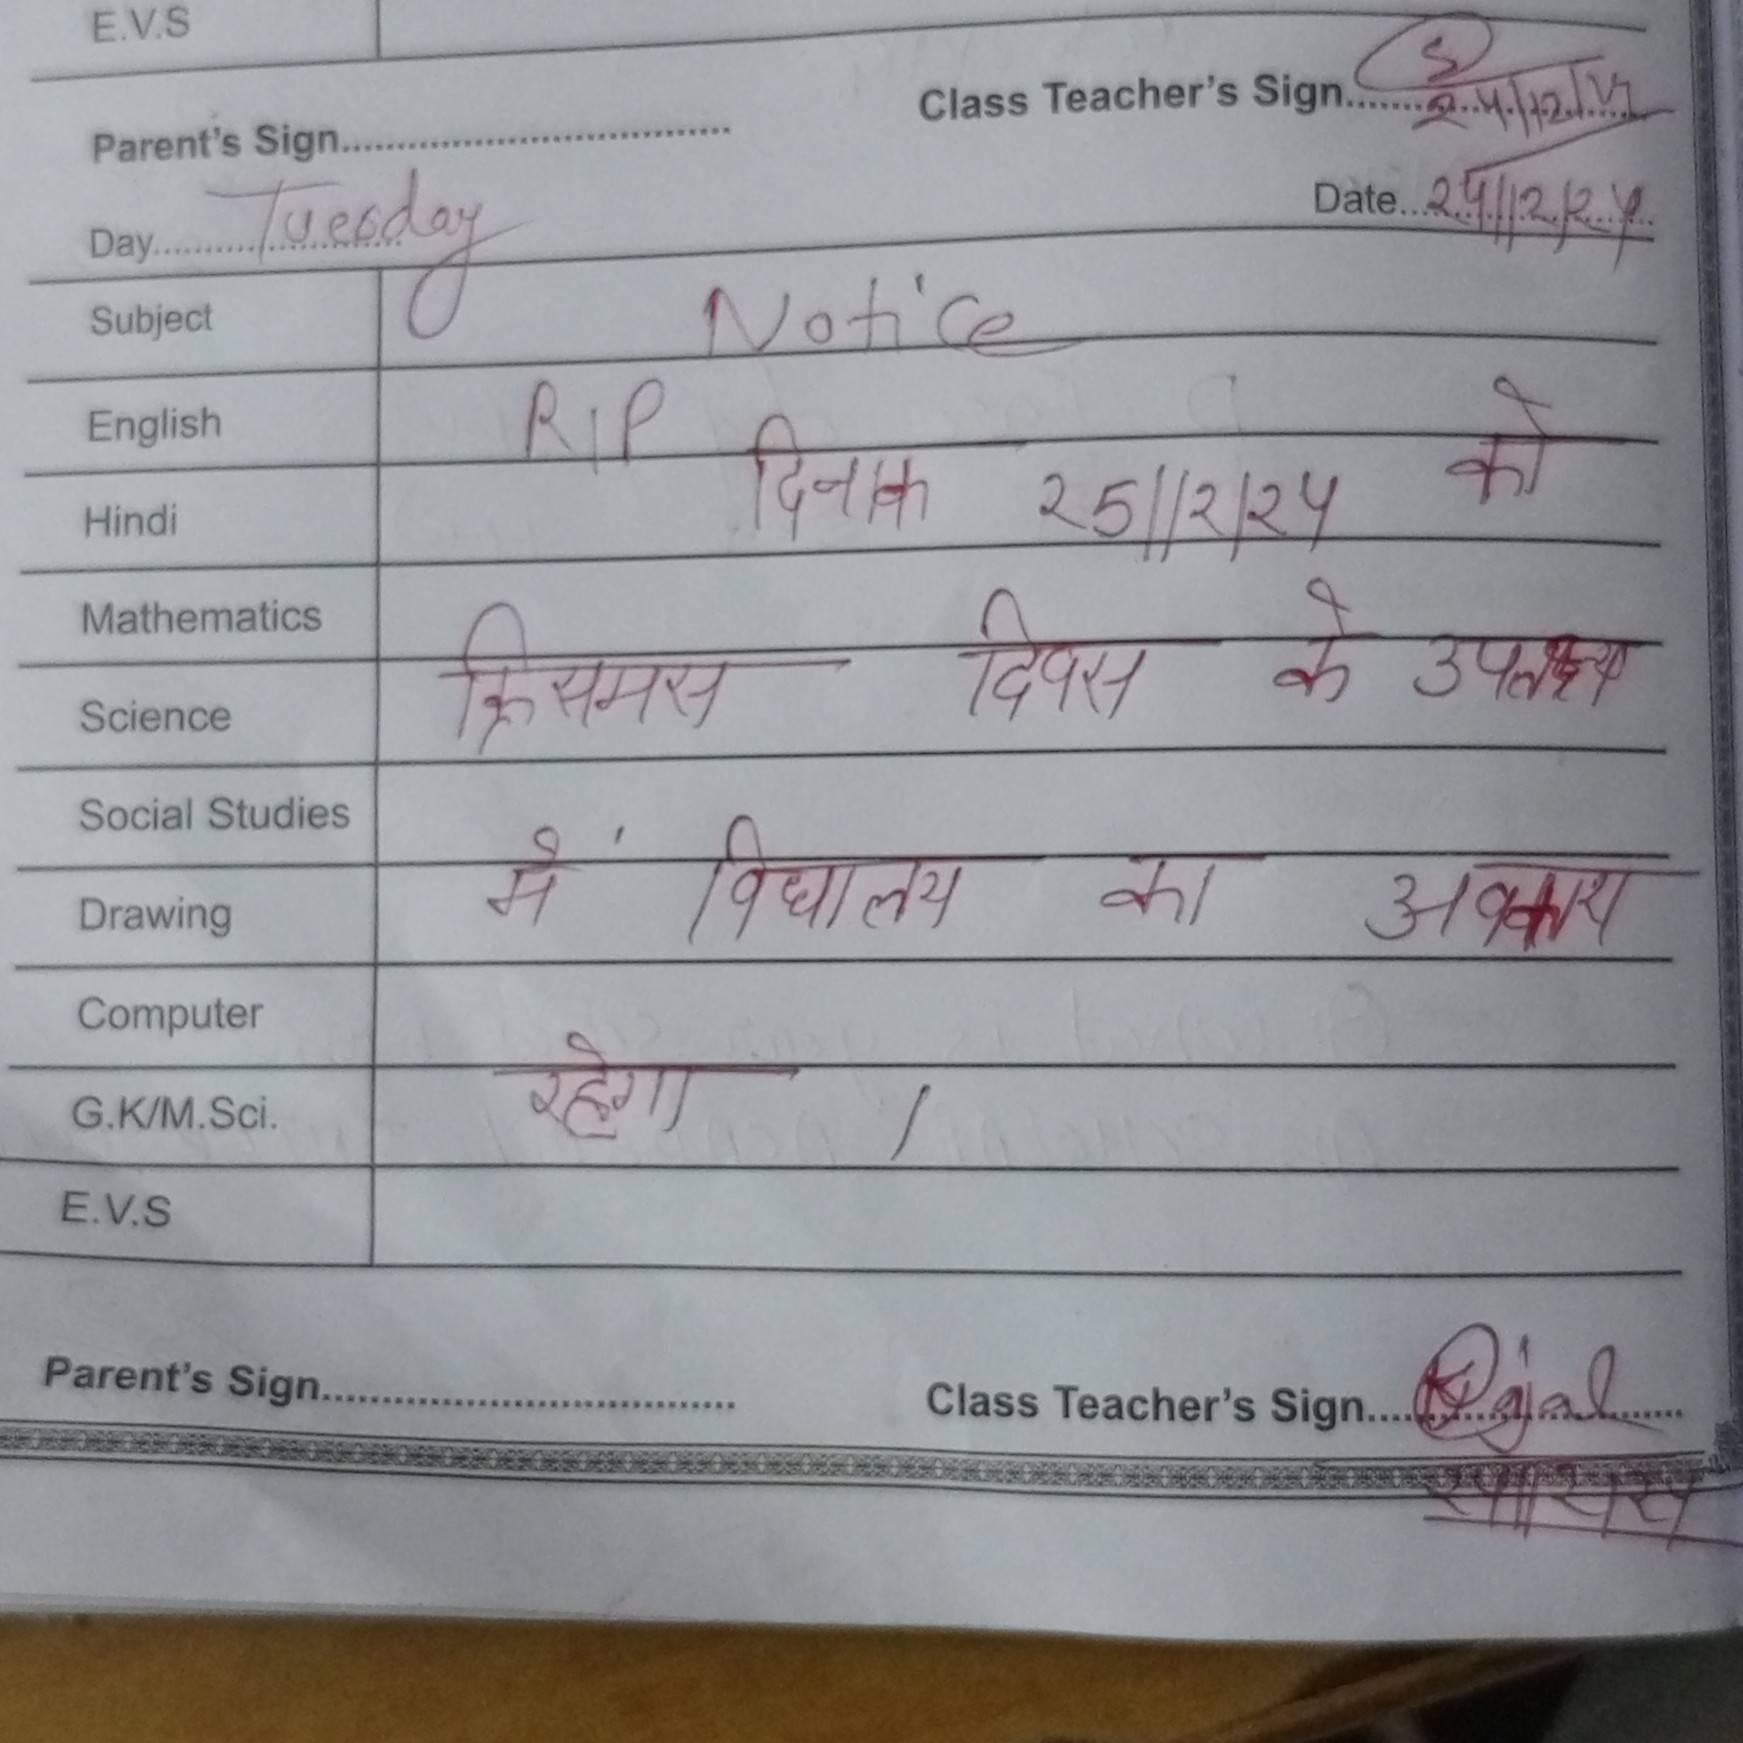 E.V.S
Class Teacher's Sign........ 24/12/24
Parent's Sign....................................
Day............ Tuesday Date... 24/12/24
Subject Notice
English RIP
Hindi दिनाक 25/12/24 को
Mathematics
Science क्रिसमस दिवस के उपलक्ष्य
Social Studies
Drawing में विधालय का अवकाश
Computer
G.K/M.Sci. रहेगा /
E.V.S
Parent's Sign.................................... Class Teacher's Sign.... Kajal
24/12/24